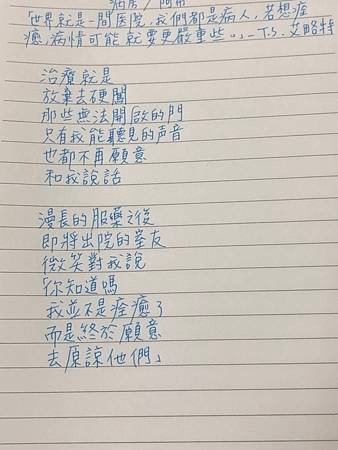 病房/阿布
「世界就是一間医院,我們都是病人,若想痊
癒,病情可能就要更嚴重些。」—T.S.艾略特
治療就是
放棄去硬闖
那些無法開啟的門
只有我能聽見的声音
也都不再願意
和我說話
漫長的服藥之後
即將出院的室友
微笑對我說
「你知道嗎
我並不是痊癒了
而是終於願意
去原諒他們」